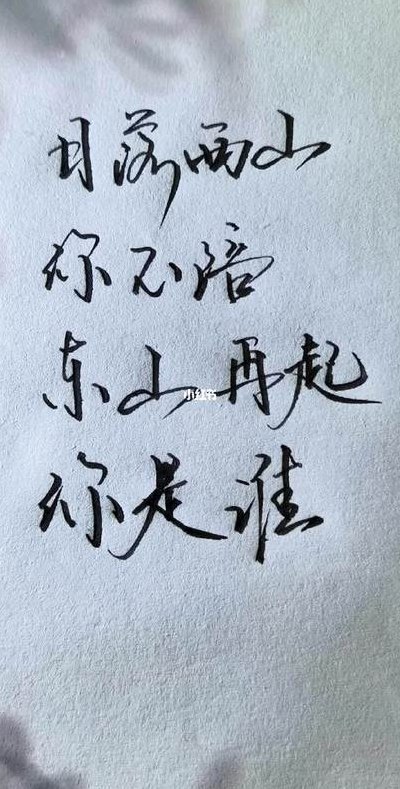 日落西山
你不陪
东山再起
小红书
你是谁